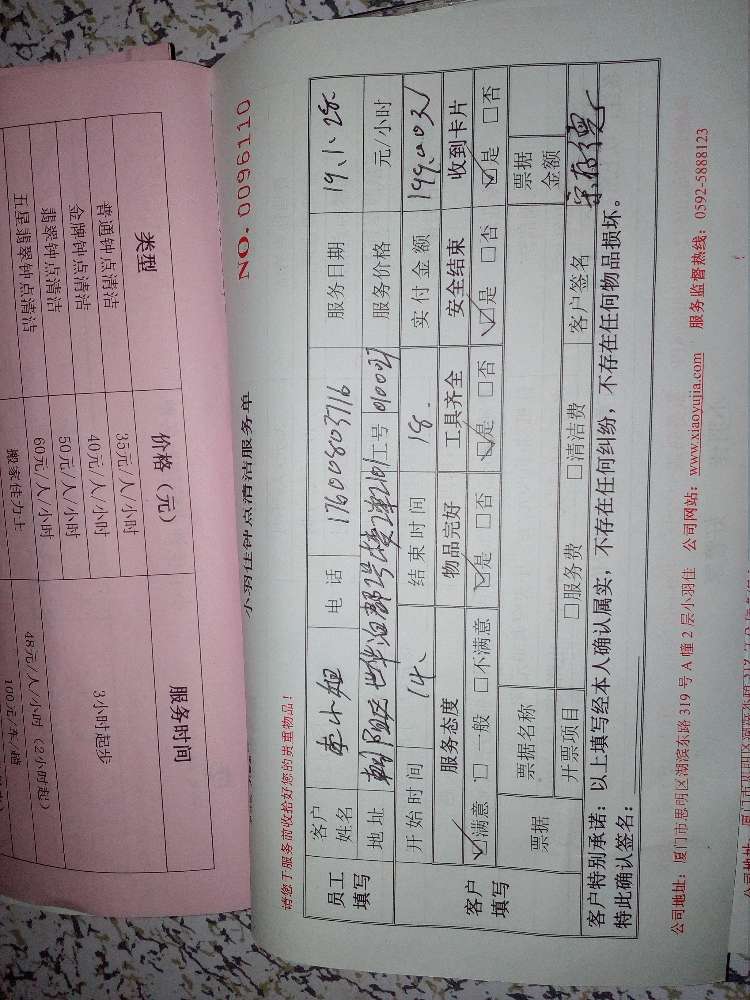 小羽佳钟点清洁服务单
NO. 0096110
请您于服务前收拾好您的贵重物品！
员工填写
客户姓名 李小姐 电话 17600803716 服务日期 19.1.28
地址 朝阳区 工号 010027 服务价格 元/小时
客户填写
开始时间 14、 结束时间 18. 实付金额
服务态度 物品完好 工具齐全 安全结束 收到卡片
☑满意 □一般 □不满意 ☑是 □否 ☑是 □否 ☑是 □否 ☑是 □否
票据 票据名称 票据金额
开票项目 □服务费 □清洁费 客户签名
客户特别承诺：以上填写经本人确认属实，不存在任何纠纷，不存在任何物品损坏。
特此确认签名：
公司地址：厦门市思明区湖滨东路 319 号 A 幢 2 层小羽佳 公司网站：www.xiaoyujia.com 服务监督热线：0592-5888123
类型 价格（元） 服务时间
普通钟点清洁 35元/人/小时 3小时起步
金牌钟点清洁 40元/人/小时
翡翠钟点清洁 50元/人/小时
五星翡翠钟点清洁 60元/人/小时
搬家佳力士 48元/人/小时（2小时起）
100元/车/趟